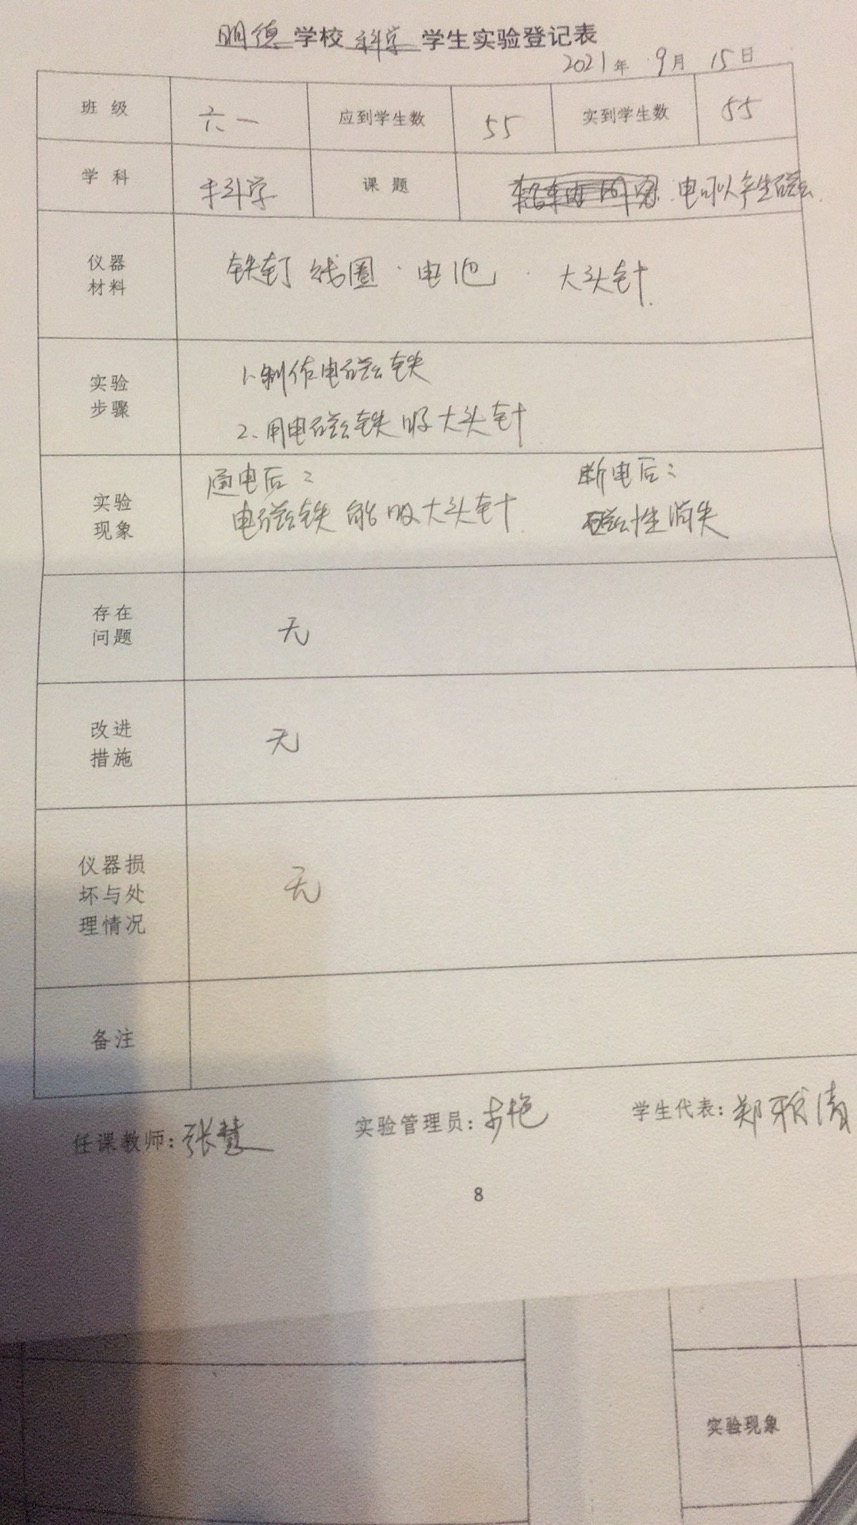 明德学校科学学生实验登记表
2021年9月15日
班级 六一 应到学生数 55 实到学生数 55
学科 科学 课题 电可以产生磁
仪器材料 铁钉 线圈·电池·大头针.
实验步骤 1.制作电磁铁
2.用电磁铁吸大头针
实验现象 通电后: 断电后:
电磁铁能吸大头针. 磁性消失
存在问题 无
改进措施 无
仪器损坏与处理情况 无
备注
任课教师:张慧 实验管理员: 学生代表:郑雅清
8
实验现象